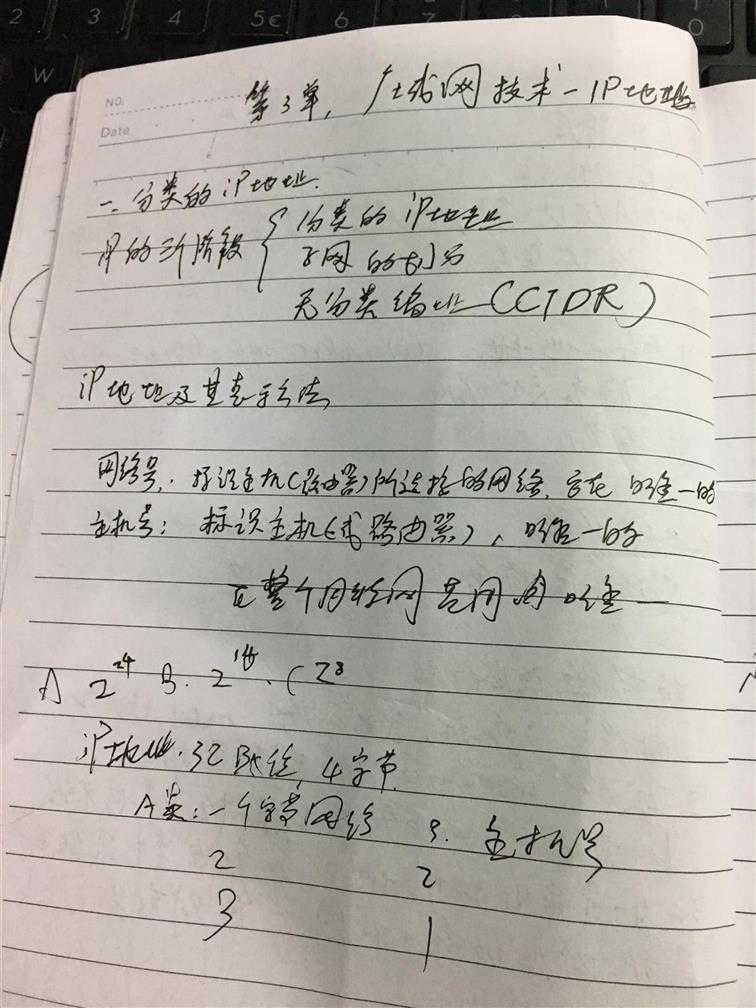 2 3 4 5€ 6 7 0
W
NO.
Date
第3章, 广域网技术-IP地址
一. 分类的IP地址.
IP的三阶段 { 分类的IP地址
子网的划分
无分类编址(CIDR)
IP地址及其表示方法
网络号: 标识主机(路由器)所连接的网络, 唯一的
主机号: 标识主机(或路由器), 唯一的
在整个互联网 唯一
A 2^24 B. 2^16. C 2^8
IP地址. 32 Bit位, 4字节
A类: 一个字节网络 3. 主机号
2 2
3 1